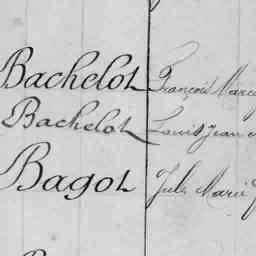 Bachelot François Marie
Bachelot Louis Jean
Bagot Jules Marie